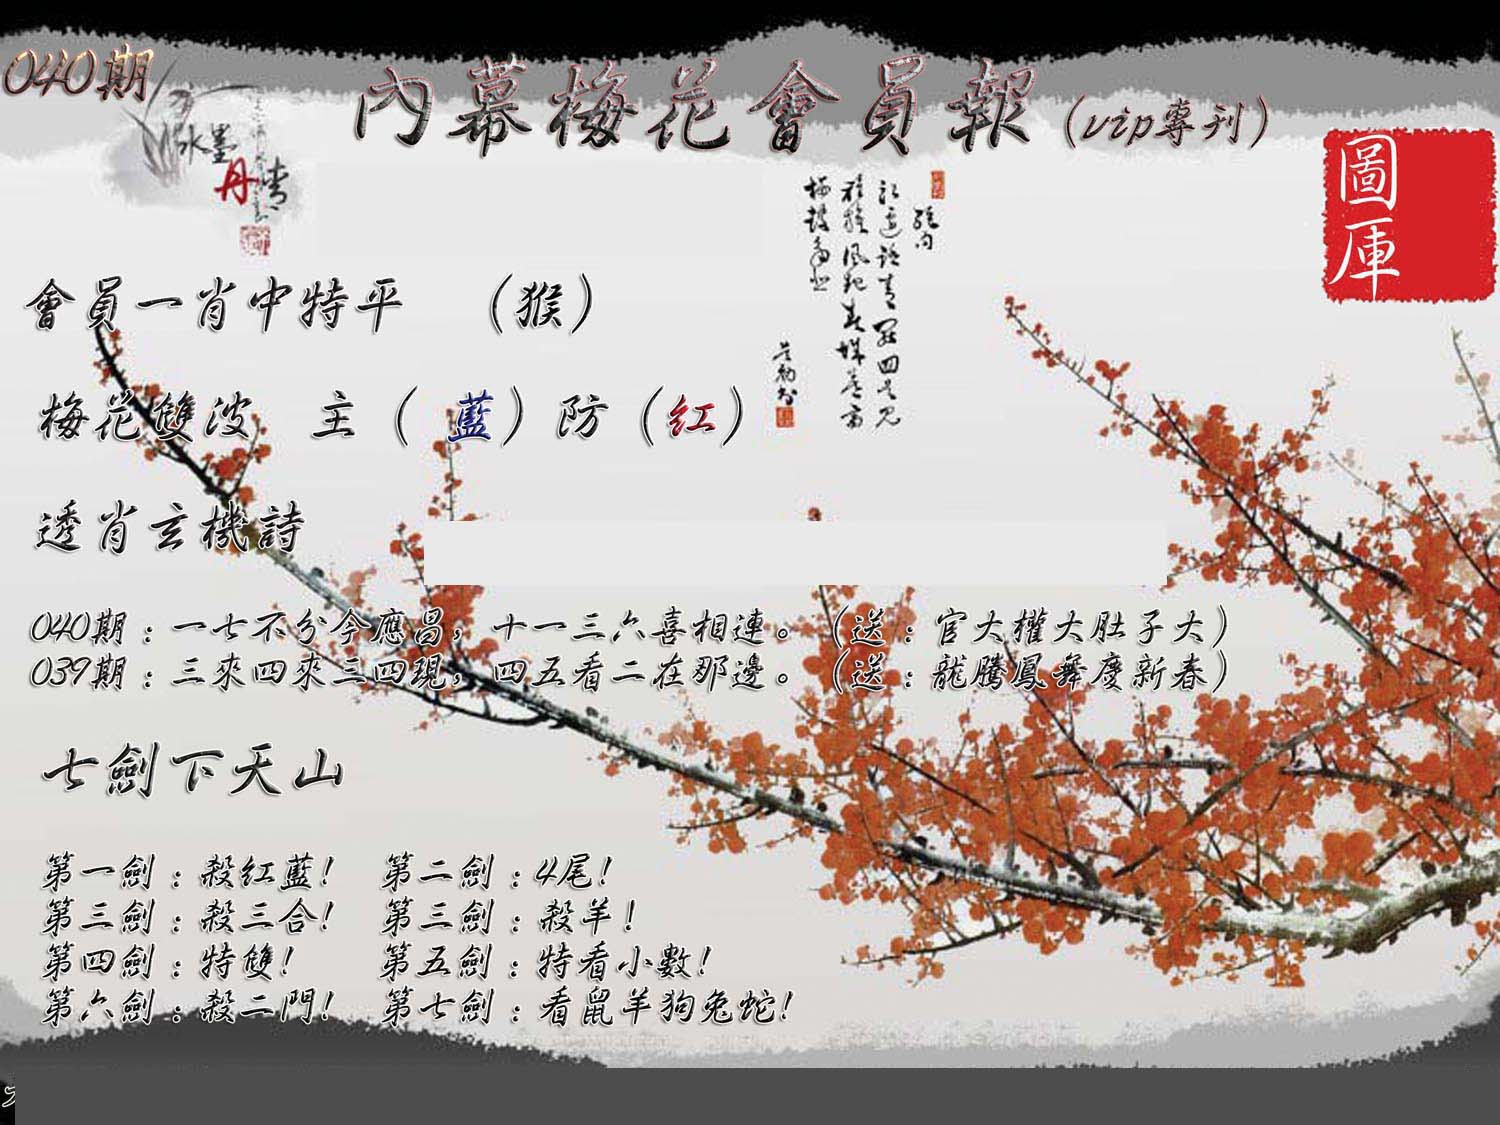 040期
內幕梅花會員報（vip專刊）
水墨
丹青
圖庫
會員一肖中特平 （猴）
梅花雙波 主（藍）防（紅）
透肖玄機詩
040期：一七不分今應昌，十一三六喜相連。（送：官大權大肚子大）
039期：三來四來三四現，四五看二在那邊。（送：龍騰鳳舞慶新春）
七劍下天山
第一劍：殺紅藍！ 第二劍：4尾！
第三劍：殺三合！ 第三劍：殺羊！
第四劍：特雙！ 第五劍：特看小數！
第六劍：殺二門！ 第七劍：看鼠羊狗兔蛇！